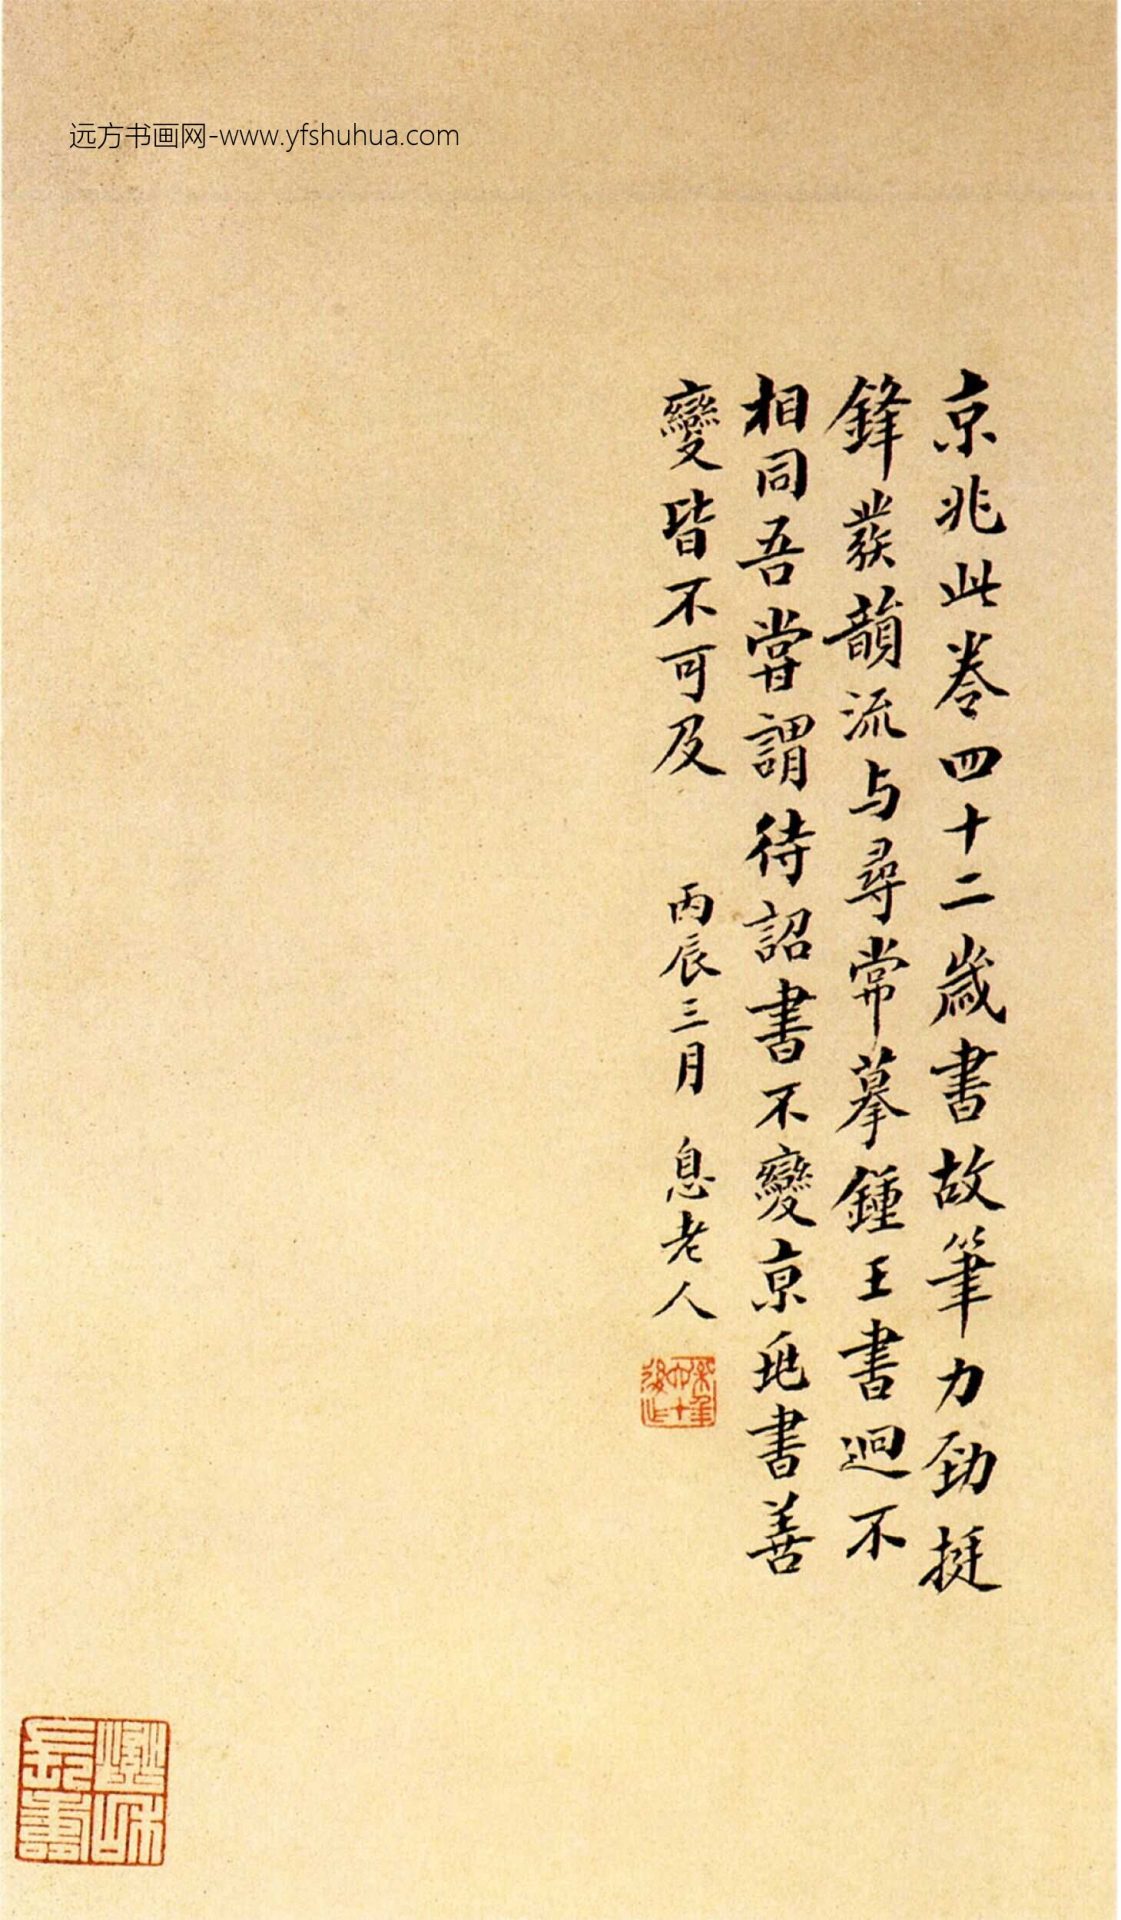 远方书画网-www.yfshuhua.com
京兆此卷四十二歲書故筆力勁挺
鋒發韻流与尋常摹鍾王書迥不
相同吾嘗謂待詔書不變京兆書善
變皆不可及
丙辰三月 息老人